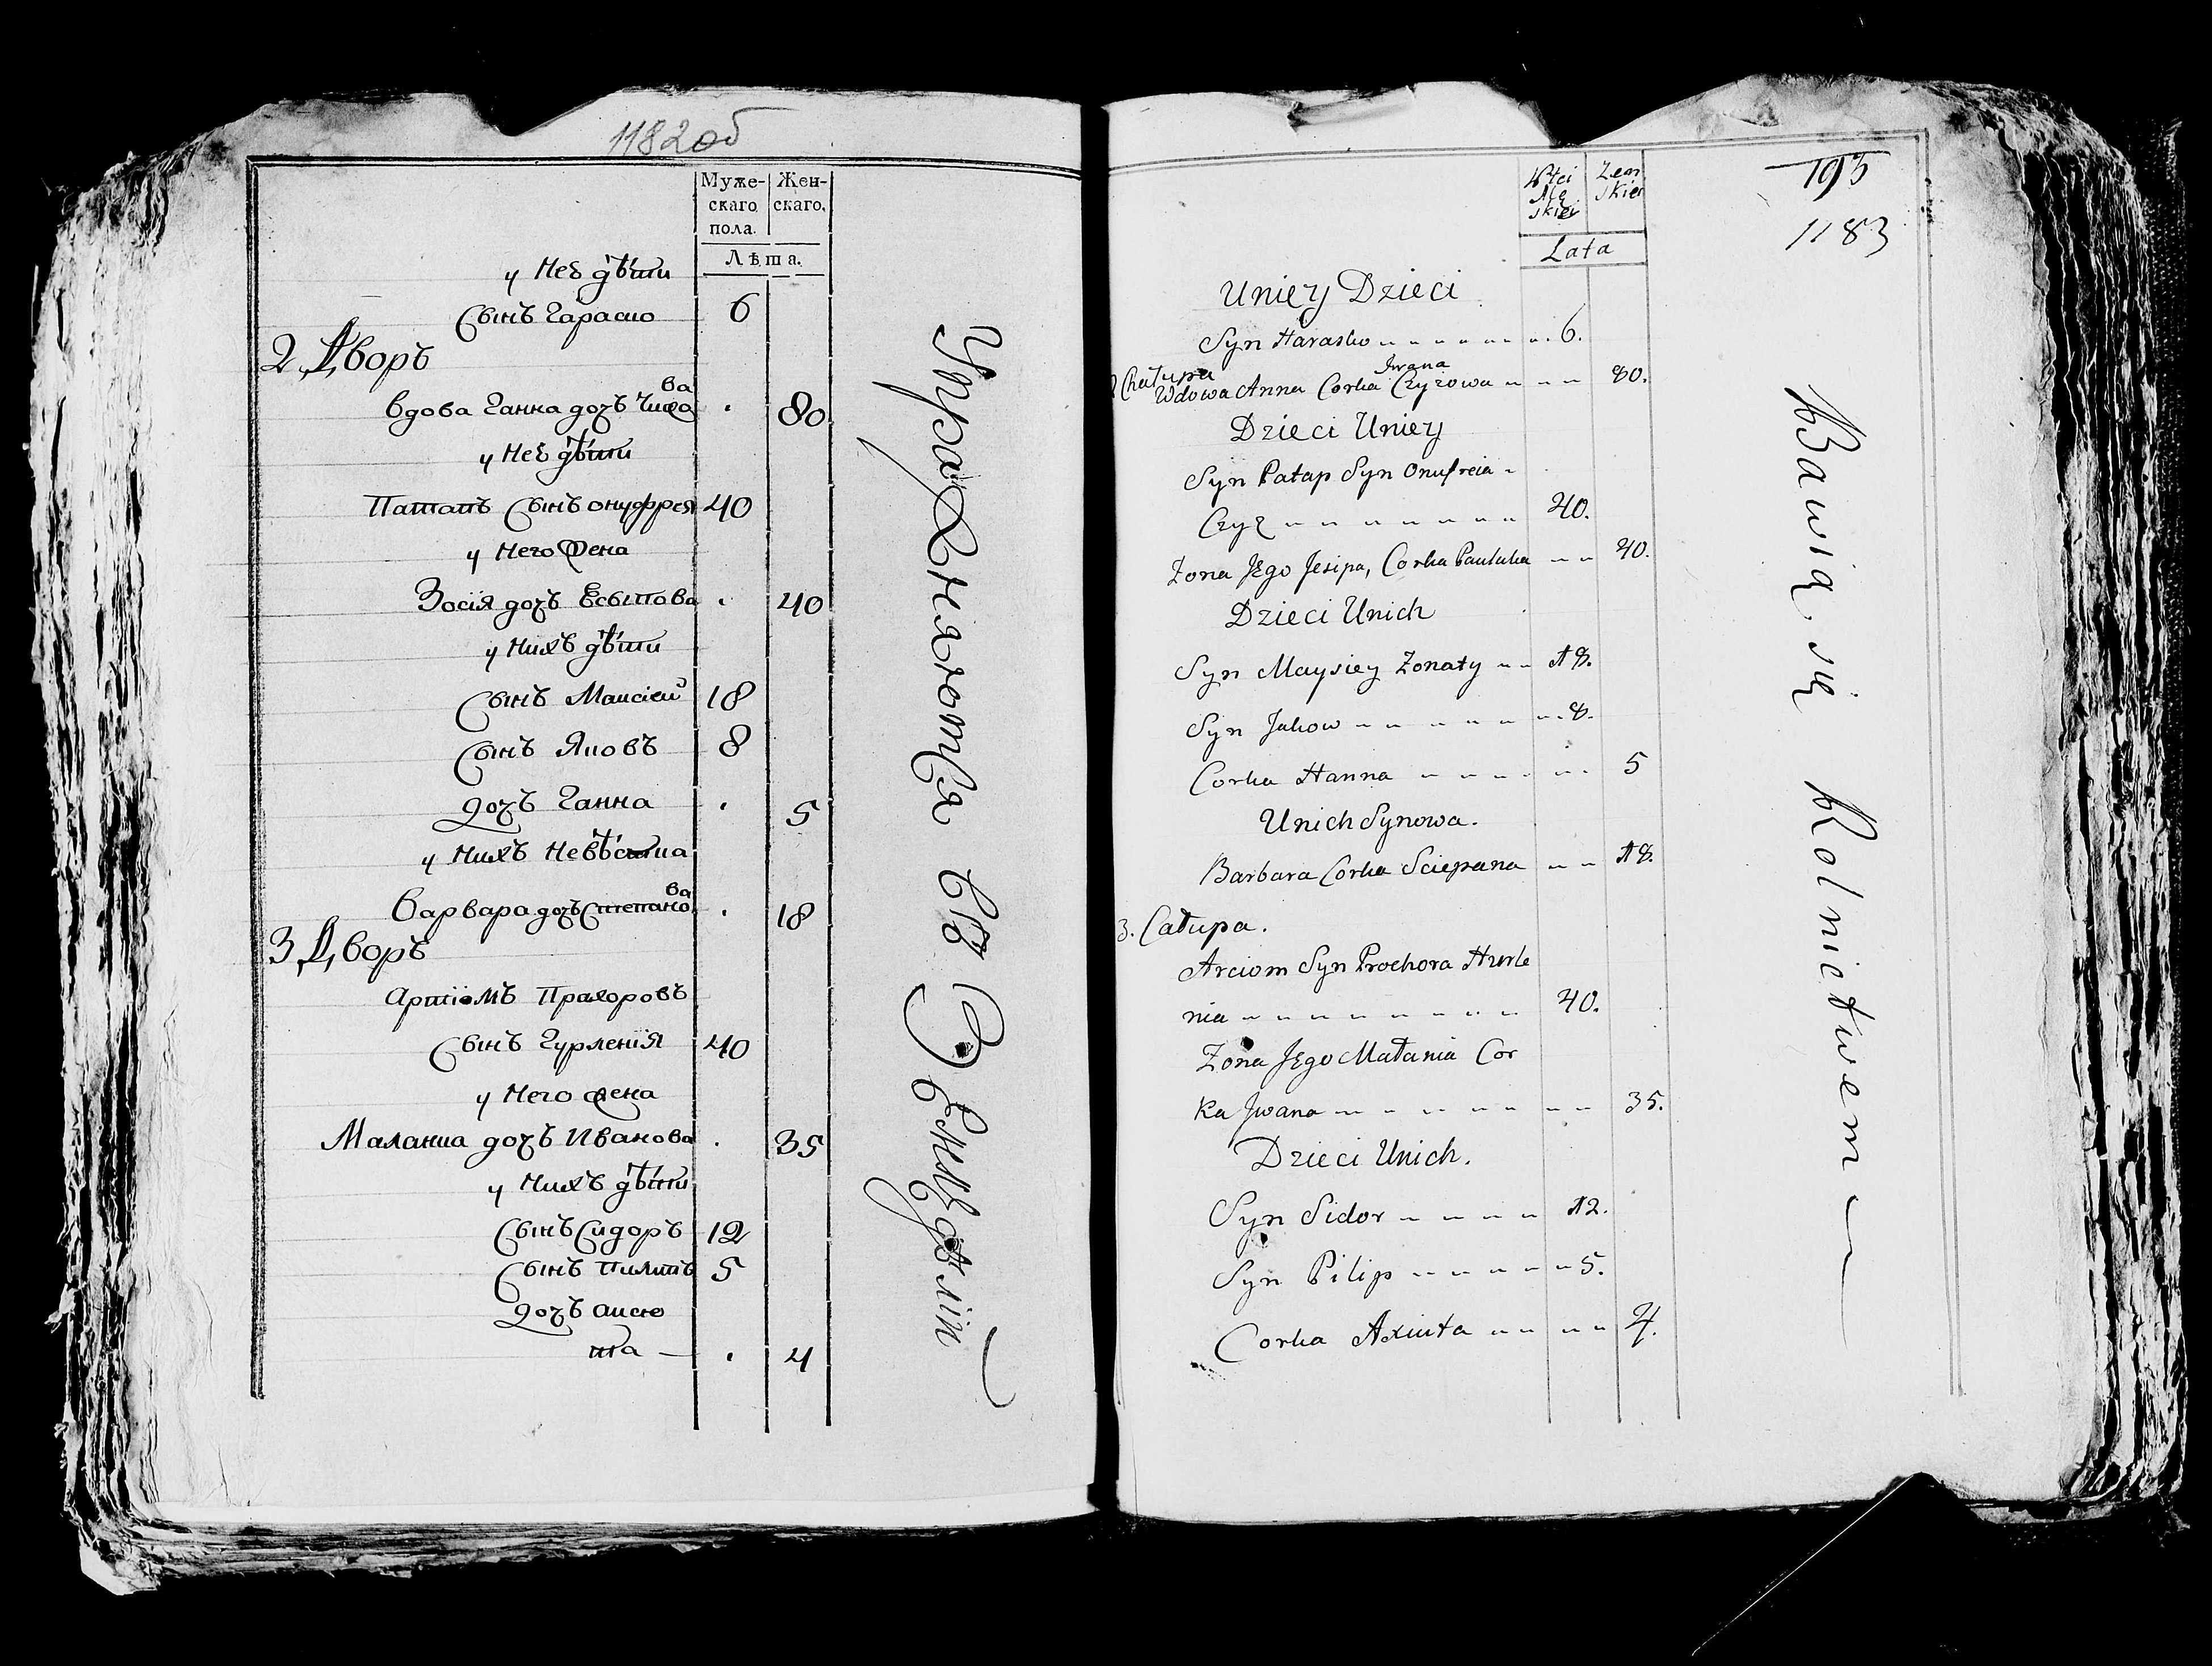 1182об
Муже-
скаго
пола.
Жен-
скаго.
Лѣта.
у неѣ дѣти
Сынъ Гараско 6
2 Дворъ
вдова Ганка дочь Чижова 80
у неѣ дѣти
Патапъ Сынъ онуфрея 40
у него жена
Зосія дочь Есыпова 40
у нихъ дѣти
Сынъ Маисіей 18
Сынъ Яковъ 8
дочь Ганна 5
у нихъ невѣстка
Варвара дочь Степанова 18
3 Дворъ
Артіомъ Прахоровъ
Сынъ Гурленія 40
у него жена
Маланиа дочь Иванова 35
у нихъ дѣти
Сынъ Сидоръ 12
Сынъ Пилипъ 5
дочь аксю
та — 4
Упражняютца въ Земледѣліи
Płci
Mę
skiei
Zen
skiei
Lata
193
1183
Uniey Dzieci
Syn Harasko 6.
2 Chałupa
Wdowa Anna Corka Iwana Czyzowa 80.
Dzieci Uniey
Syn Patap Syn Onufreia
Czyz 40.
Zona Jego Jesipa, Corka Pauluka 40.
Dzieci Unich
Syn Maysiey Zonaty 18.
Syn Jakow 8.
Corka Hanna 5
Unich Synowa.
Barbara Corka Sciepana 18.
3. Całupa.
Arciom Syn Prochora Hurle
nia 40.
Zona Jego Małania Cor
ka Jwana 35.
Dzieci Unich.
Syn Sidor 12.
Syn Pilip 5.
Corka Axiuta 4.
Bawią się Rolnictwem